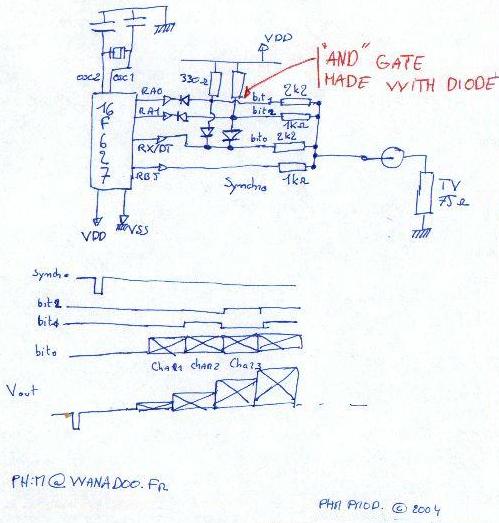 VDD
"AND" GATE
MADE WITH DIODE
330Ω
osc2 osc1
RA0
bit1
2k2
RA1
bit2
1kΩ
RX/DT
bit0
2k2
Synchro
1kΩ
16
F
6
2
7
TV
75Ω
VDD
VSS
Synchro
bit2
bit1
bit0
Char1 char2 Char3
Vout
PH:M@WANADOO.FR
PHM PROD. © 2004